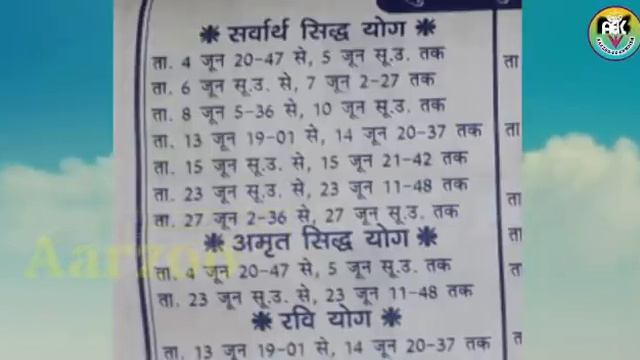 ❋ सर्वार्थ सिद्ध योग ❋
ता. 4 जून 20-47 से, 5 जून सू.उ. तक
ता. 6 जून सू.उ. से, 7 जून 2-27 तक
ता. 8 जून 5-36 से, 10 जून सू.उ. तक
ता. 13 जून 19-01 से, 14 जून 20-37 तक
ता. 15 जून सू.उ. से, 15 जून 21-42 तक
ता. 23 जून सू.उ. से, 23 जून 11-48 तक
ता. 27 जून 2-36 से, 27 जून सू.उ. तक
❋ अमृत सिद्ध योग ❋
ता. 4 जून 20-47 से, 5 जून सू.उ. तक
ता. 23 जून सू.उ. से, 23 जून 11-48 तक
❋ रवि योग ❋
ता. 13 जून 19-01 से, 14 जून 20-37 तक
ता
ता
ता
ता
ता
Aarzoo
ABK